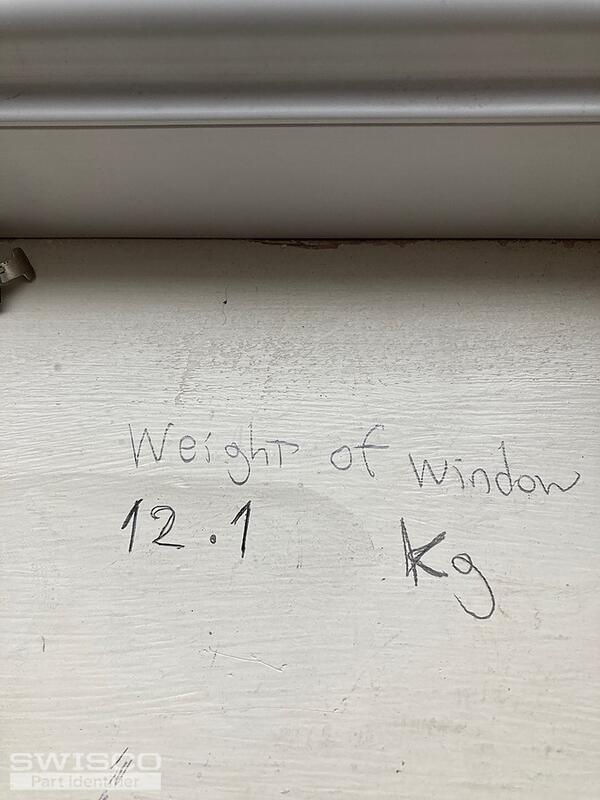 Weight of window
12.1 Kg
SWISCO
Part Identifier